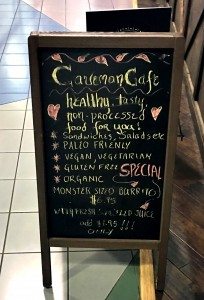 Caveman Cafe
healthy, tasty,
non-processed
food for you!
* Sandwiches, Salads etc
* PALEO FRIENLY
* VEGAN, VEGETARIAN
* GLUTEN FREE
* ORGANIC
SPECIAL
MONSTER SIZED BURRITO
$6.95
WITH FRESH SQUEEZED JUICE
add $1.95 !!!
ONLY